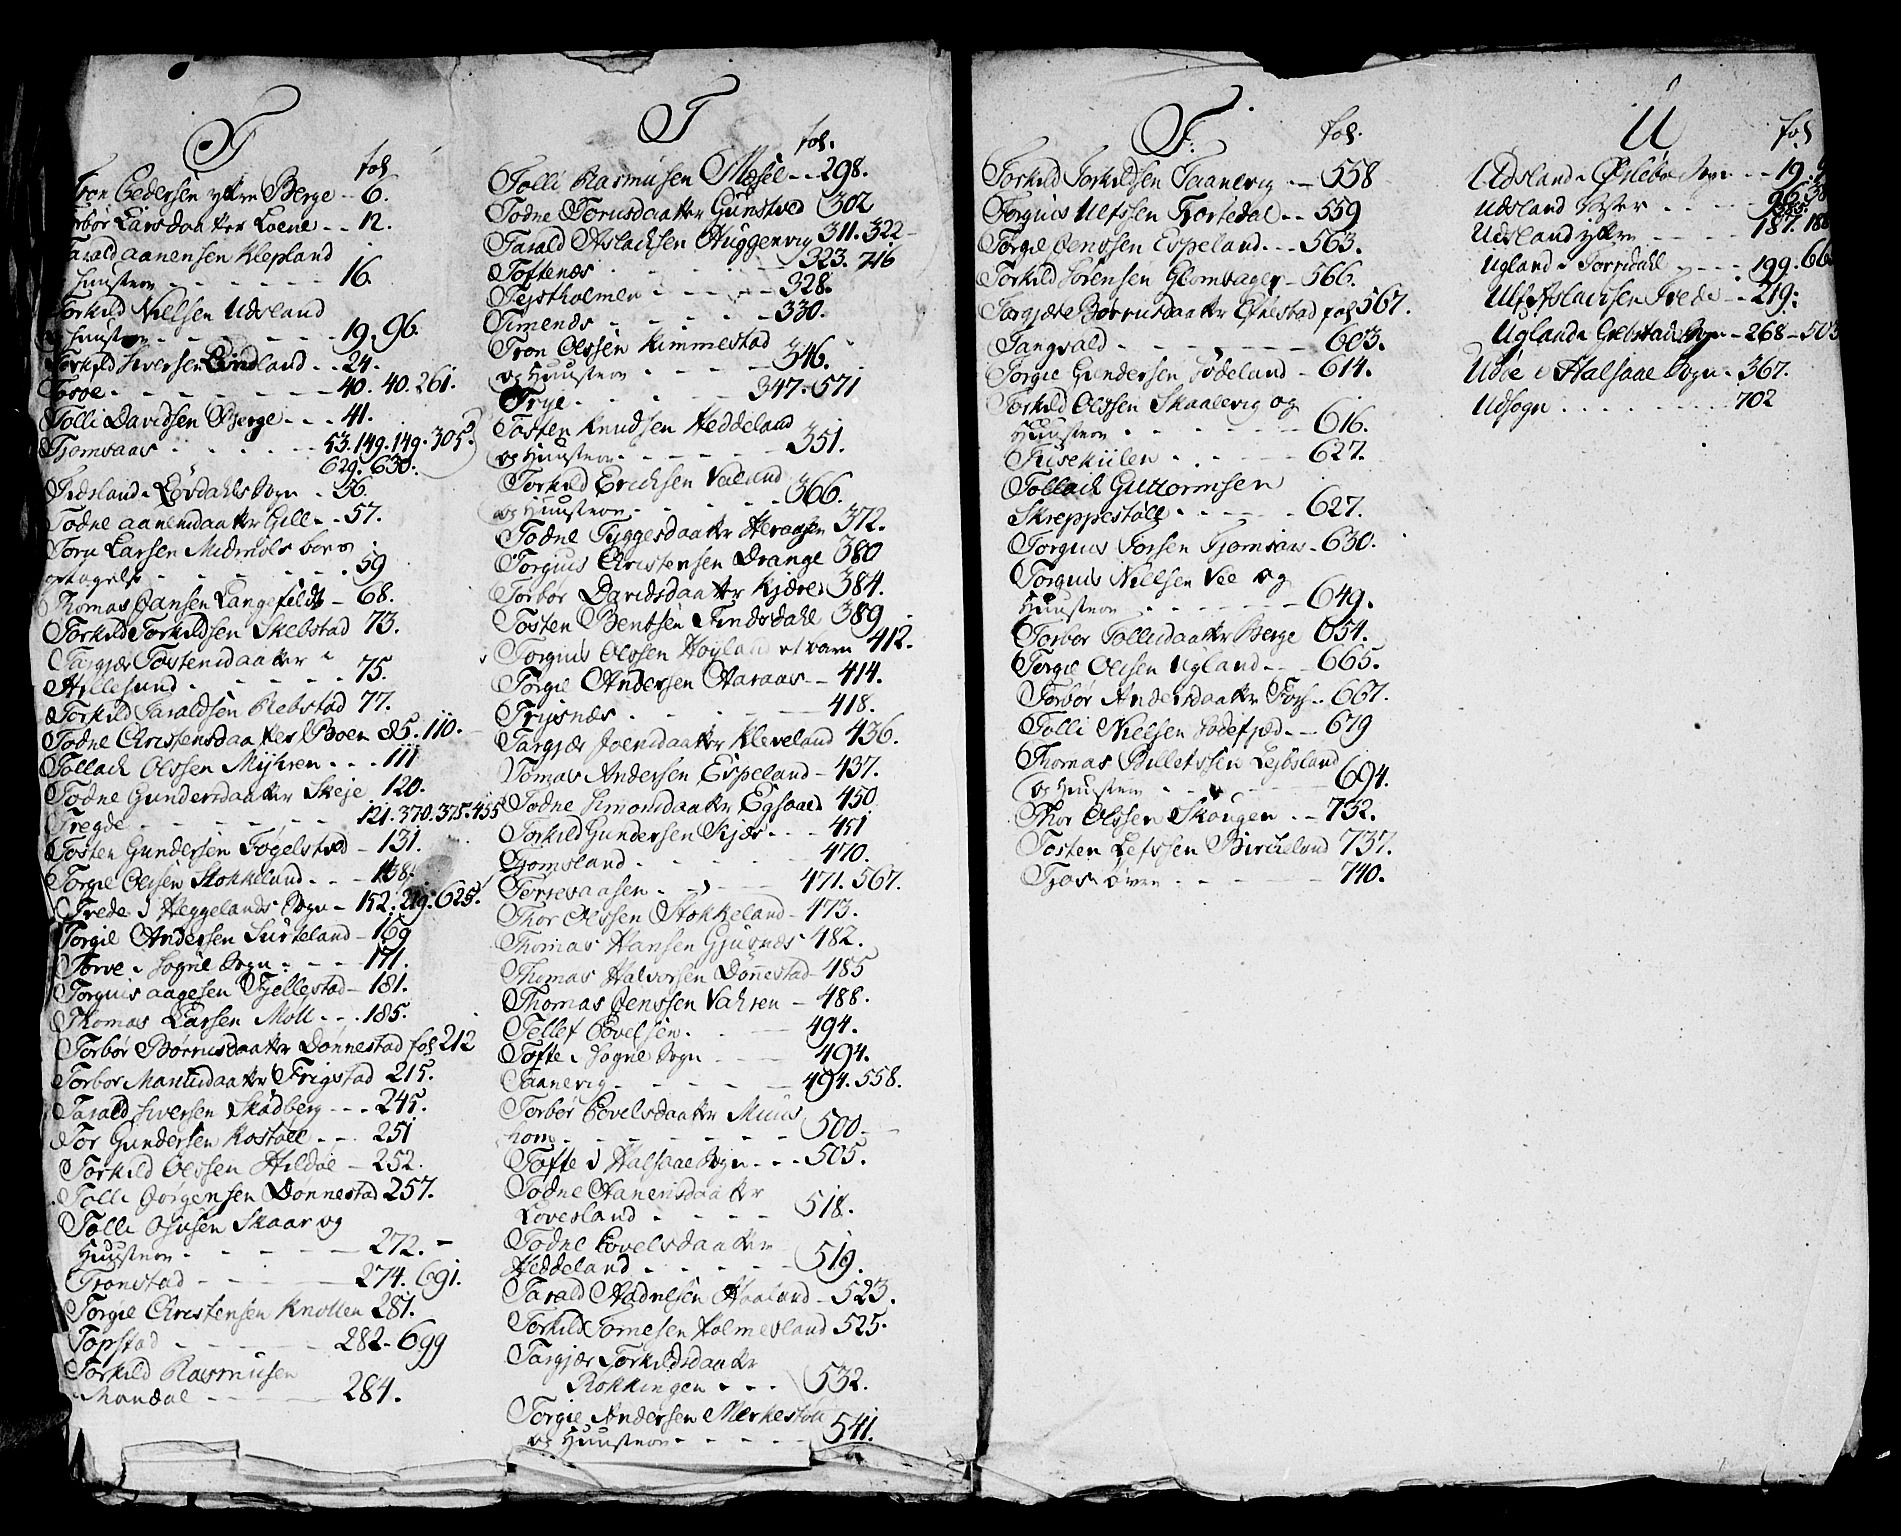 T
fol
Tron Pedersen yttre Berge - - 6.
Torbør Larsdaatter Loene - - 12.
Tarald Aanensen Klepland
og Huustroe - - - 16.
Torkild Nielsen Udsland
og Huustroe - - - 19. 96.
Torkild Iversen Lindland - - 24.
Torve - - - 40. 40. 261.
Tolli Davidsen Berge - - - 41.
Tjomsaas - - - 53. 149. 149. 305.
629. 630.
Tidsland i Løvdahls Sogn - 56.
Todne Aanensdaatter Gill - - 57.
Toru Larsen Midmols barns
optagelse - - - 59
Thomas Jansen Langefeldt - 68.
Torkild Torkildsen Skebstad 73.
Targjær Tostensdaatter
Hillesund - - - 75.
Torkild Taraldsen Rebstad 77.
Todne Christensdaatter Boen 85. 110.
Tollach Olssen Myhren - - - 111
Todne Gundersdaatter Skeje 120.
Tregde - - - 121. 370. 375. 455
Tosten Gundersen Fogelstved - 131.
Torgie Olssen Stokkeland - - - 138.
Trede i Heggelands Sogn - 152. 219. 625.
Torgie Andersen Surteland - 169
Torve i Sogne Sogn - - - 171.
Torguis Aagesen Fjellestad - 181.
Thomas Larsen Moll - - - 185.
Torbør Børrusdaatter Dønnestad fol 212
Torbor Mantisdaatter Frigstad 215.
Tarald Iversen Skadberg - - - 245.
Tor Gundersen Rostøll - - - 251
Torkild Olssen Hildøe - 252.
Tolli Jorgensen Dønnestad 257.
Tolli Osusen Skaar og
Huustroe - - - 272. -
Tronstad - - - 274. 691.
Torgie Christensen Knollen 281.
Topstad - - - 282 - 699
Torkild Rasmusen
Mandal - - - 284.
T
fol.
Tolli Rasmusen Møsel - - 298.
Todne Torusdaatter Gunstved 302
Tarald Aslachsen Huggenvig 311. 322 -
Toftenæs - - - 323. 746
Tejstholmen - - - 328.
Timenes - - - 330.
Tron Olssen Kimmestad
og Huustroe - - - 346.
Trye - - - 347. 571
Tosten Knudsen Heddeland
og Huustroe - - - 351.
Torkild Erichsen Valand
og Huustroe - - - 366.
Todne Tyggesdaatter Heraasen 372.
Torguis Christensen Drange 380
Torbor Davidsdaatter Kjære 384.
Tosten Bentsen Findsdahl 389
Torguis Olssen Høyland et barn 412.
Torgie Andersen Aaraas - - 414.
Trysnæs - - - 418.
Targjær Joensdaatter Kleveland 436.
Tomas Andersen Espeland - 437.
Todne Simonsdaatter Egsaaed 450
Torkild Gundersen Kjær - - - 451
Tjomsland - - - 470.
Terjesaasen - - - 471. 567.
Thor Olssen Stokkeland - 473.
Thomas Hansen Gjusnæs 482.
Thomas Halvorsen Dønnestad - 485
Thomas Jenssen Vahren - 488.
Tellef Povelsen - - - 494.
Tofte i Sogne Sogn - - - 494.
Taanevig - - - 494. 558.
Torbør Povelsdaatter Muus
hom - - - 500.
Tofte i Halsaae Sogn - - - 505.
Todne Aanensdaatter
Lovesland - - - 518.
Todne Povelsdaatter
Heddeland - - - 519.
Tarald Aadnesen Haaland - 523.
Torkild Tomesen Holmesland 525.
Targjær Torkildsdaatter
Rokkingen - - - 532.
Torgie Andersen Merkestøll
og Huustroe - - - 541.
T.
fol.
Torkild Torkildsen Taanevig - - 558
Torguis Ulfssen Tortedal - - 559
Torgie Jenssen Espeland - - - 563.
Torkild Sørensen Glomsager - 566.
Targjær Børrusdaatter Øfrestad fol 567.
Tangvald - - - 603.
Torgie Gundersen Sødeland - - 614.
Torkild Olssen Skaalevig og
Huustroe - - - 616.
Tusekiilen - - - 627.
Tollach Guttormsen
Skreppestøll - - - 627.
Torguis Torsen Tjomsaas - 630.
Torguis Nielsen Vee og
Huustroe - - - 649.
Torbor Tollisdaatter Berge 654.
Torgie Olssen Ugland - - - 665.
Torbør Andersdaatter Foss - - 667.
Tolli Nielsen Sodefjed - - 679
Thomas Billetssen Lejbsland
og Huustroe - - - 694.
Thor Olssen Skougen - - - 732.
Tosten Lefssen Birckeland 737.
Tjos øvre - - - 740.
U
fol
Udsland i Øslebøe Sogn - - 19.
Udsland vester - - - 96.
385.
Udsland yttre - - - 187. 188
Ugland i Torridall - - - 199. 66
Ulf Aslachsen Trede - - 219.
Ugland i Grebstad Sogn - 268 - 503
Udøe i Halsaae Sogn - 367.
Udsogn - - - 702